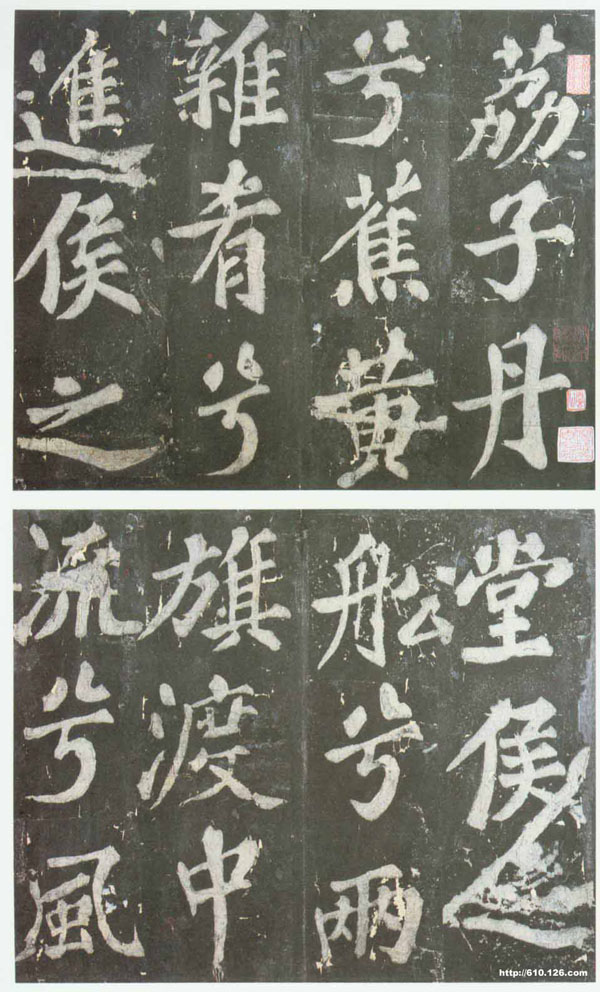 荔子丹
兮蕉黄
雜肴兮
進侯之
堂侯之
舩兮兩
旗渡中
流兮風
http://610.126.com